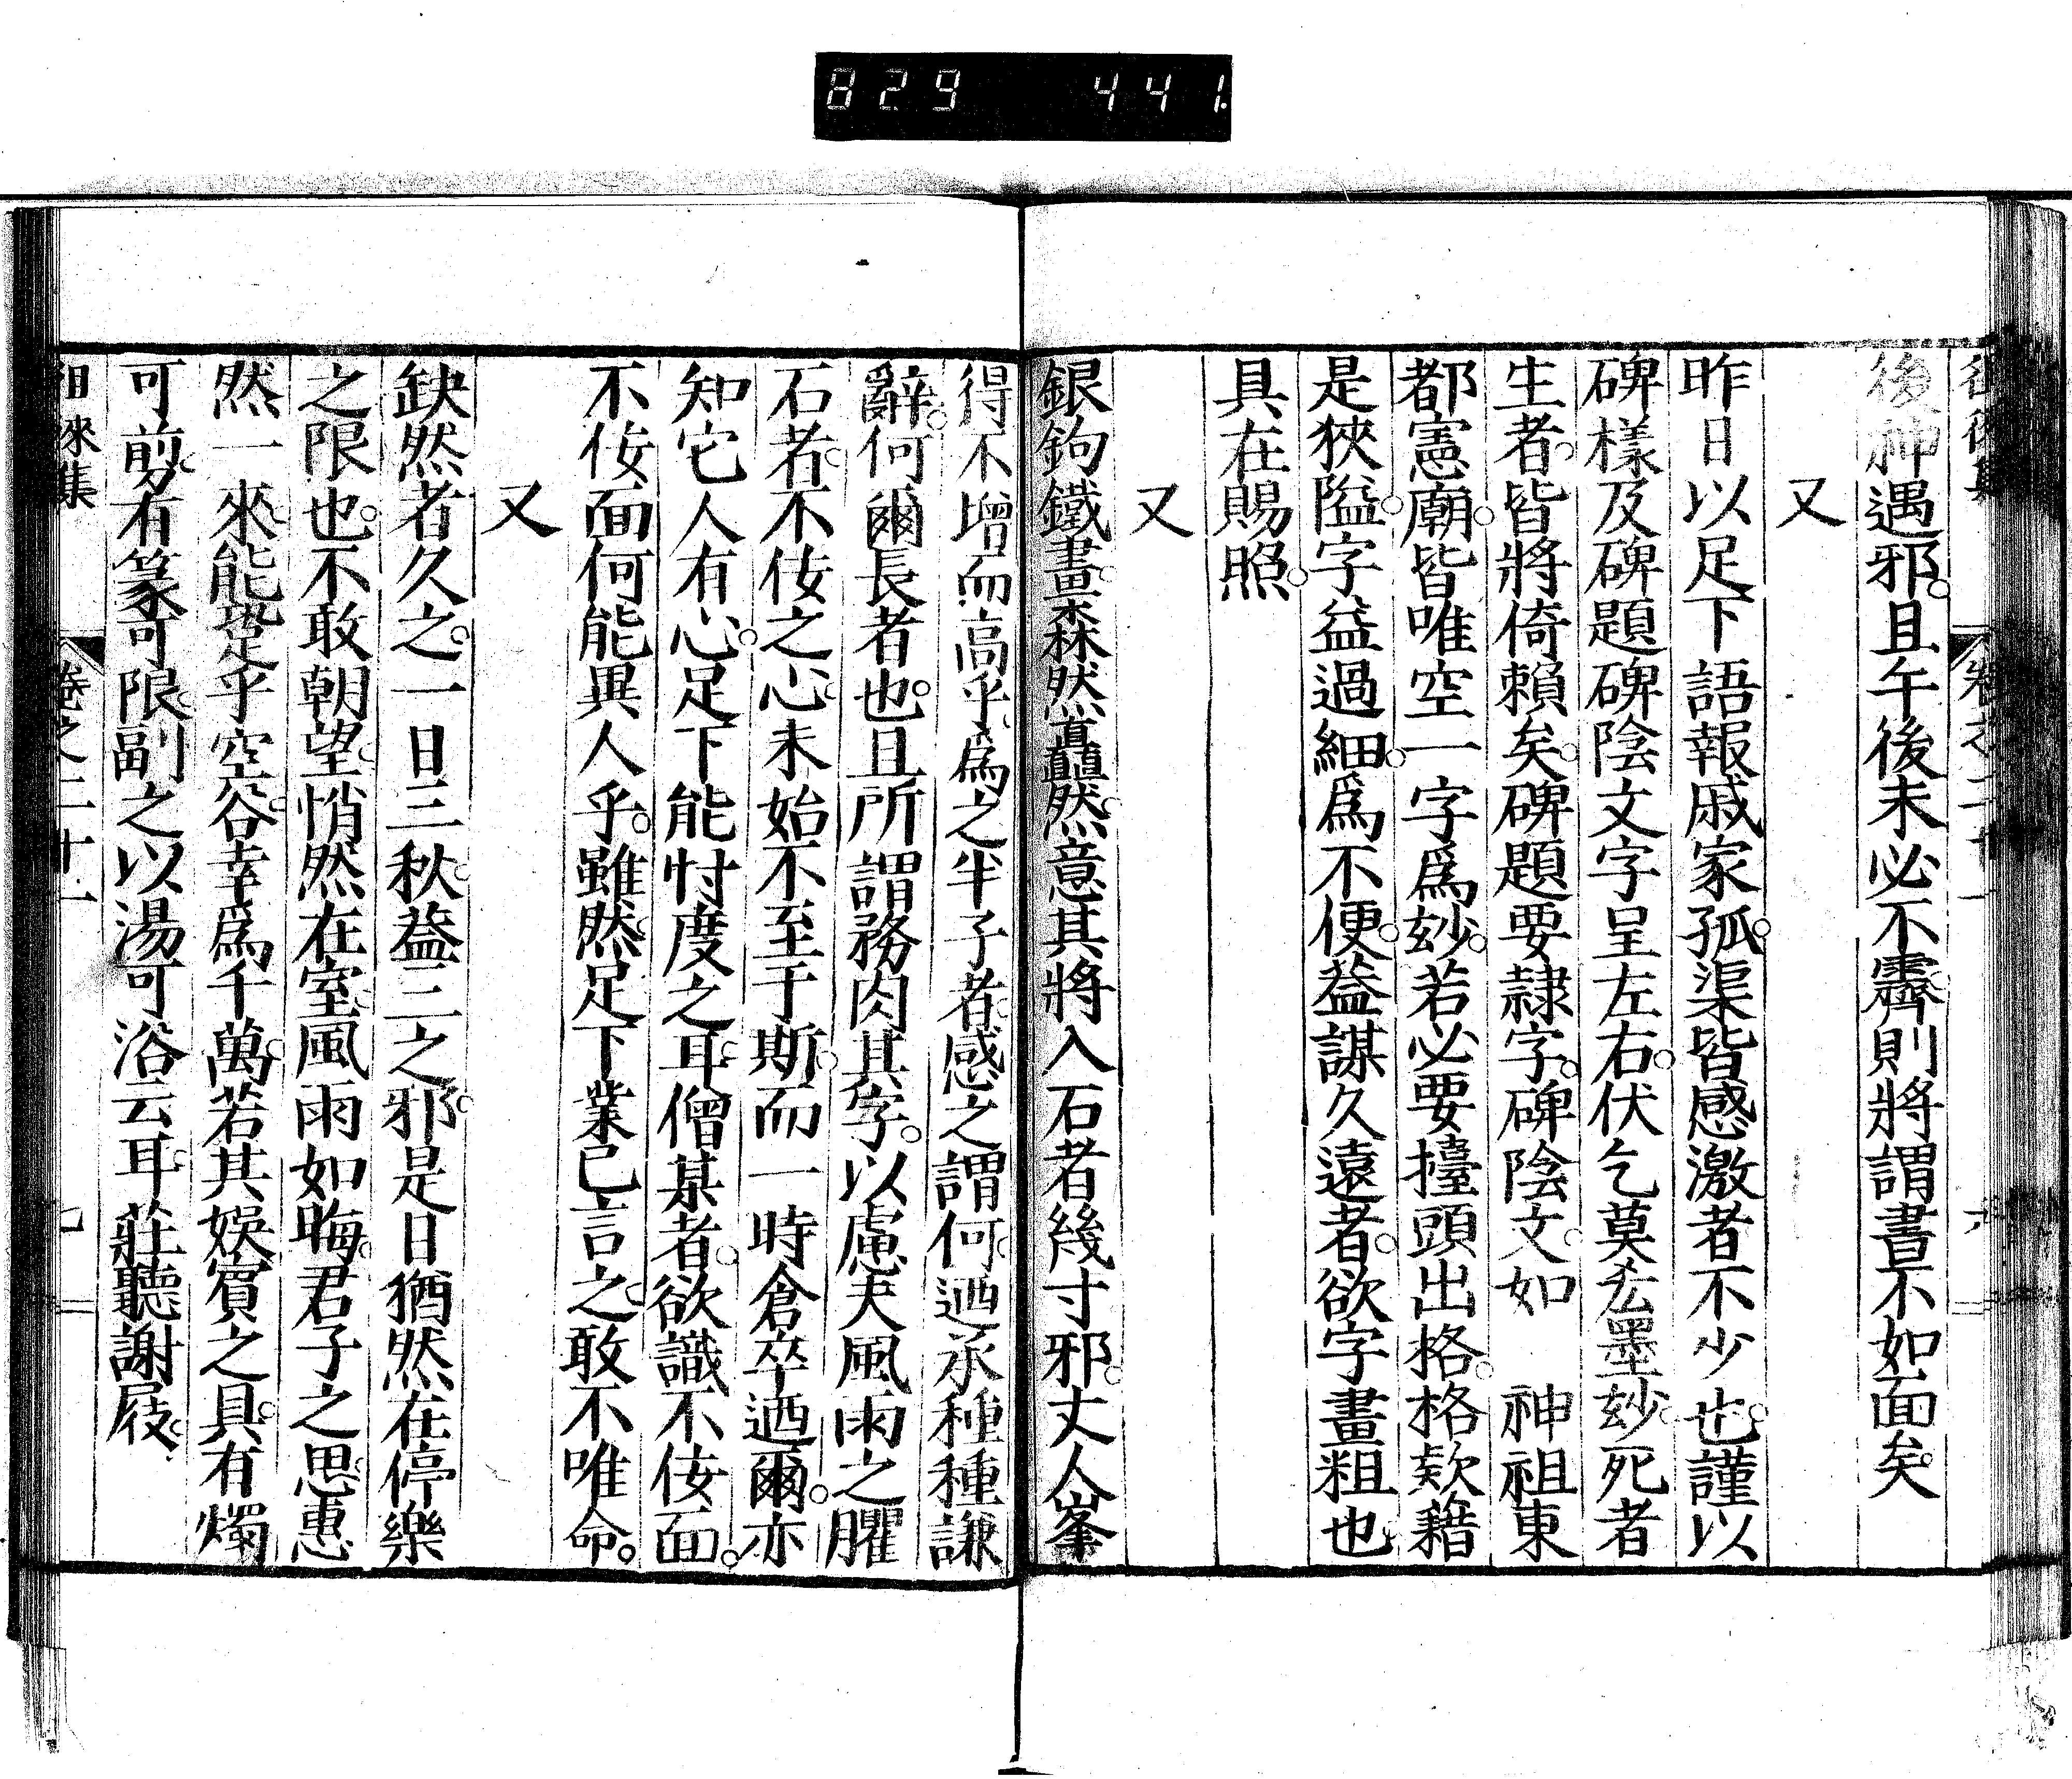 829 441.
後神遇邪。且午後未必不霽。則將謂晝不如面矣。
又
昨日以足下語報戚家。孤渠皆感激者不少也。謹以
碑樣及碑題碑陰文字呈左右。伏乞莫吝墨妙。死者
生者。皆將倚賴矣。碑題要隷字。碑陰文。如 神祖東
都憲廟。皆唯空一字爲妙。若必要擡頭出格。格欵藉
是狹隘。字益過細。爲不便。益謀久遠者。欲字畫粗也。
具在賜照。
又
銀鉤鐵畫。森然矗然。意其將入石者幾寸邪。丈人峯
得不增而高乎。爲之半子者。感之謂何。迺承種種謙
辭。何爾長者也。且所謂務肉其字。以慮夫風雨之臞
石者。不佞之心。未始不至于斯。而一時倉卒迺爾。亦
知它人有心。足下能忖度之耳。僧某者。欲識不佞面。
不佞面何能異人乎。雖然。足下業已言之。敢不唯命。
又
缺然者久之。一日三秋。益三之邪。是日猶然在停樂
之限也。不敢朝望。悄然在室。風雨如晦。君子之思。惠
然一來。能跫乎空谷。幸爲千萬。若其娛賓之具。有燭
可剪。有篆可限。副之以湯可浴云耳。莊聽謝屐。
徂徠集 卷之二十一 七